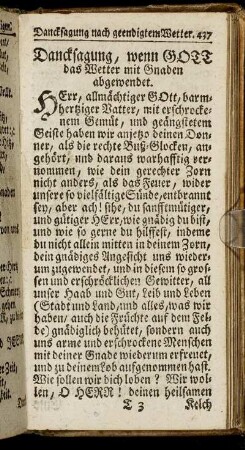 Dancksagung nach geendigtem Wetter. 437
Dancksagung, wenn GOTT
das Wetter mit Gnaden
abgewendet.
HErr, allmächtiger GOtt, barm-
hertziger Vatter, mit erschrocke-
nem Gemüt, und geängstetem
Geiste haben wir anjetzo deinen Don-
ner, als die rechte Buß-Glocken, an-
gehört, und daraus warhafftig ver-
nommen, wie dein gerechter Zorn
nicht anders, als das Feuer, wider
unsere so vielfältige Sünde, entbrannt
sey, aber ach! sihe, du sanfftmütiger,
und gütiger HErr, wie gnädig du bist,
und wie so gerne du hilffest, indeme
du nicht allein mitten in deinem Zorn,
dein gnädiges Angesicht uns wieder-
um zugewendet, und in diesem so gros-
sen und erschröcklichen Gewitter, all
unser Haab und Gut, Leib und Leben
(Stadt und Land, und alles, was wir
haben, auch die Früchte auf dem Fel-
de) gnädiglich behütet, sondern auch
uns arme und erschrockene Menschen
mit deiner Gnade wiederum erfreuet,
und zu deinem Lob aufgenommen hast.
Wie sollen wir dich loben? Wir wol-
len, O HERR! deinen heilsamen
T 3 Kelch